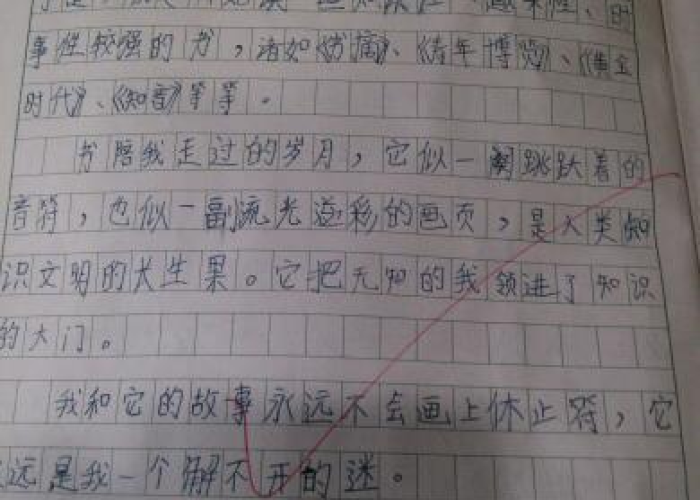 事性较强的书，诸如《书摘》、《青年博览》、《黄金
时代》、《知音》等等。
书陪我走过的岁月，它似一阕跳跃着的
音符，也似一副流光逸彩的画页，是人类知
识文明的长生果。它把无知的我领进了知识
的大门。
我和它的故事永远不会画上休止符，它
远是我一个解不开的迷。